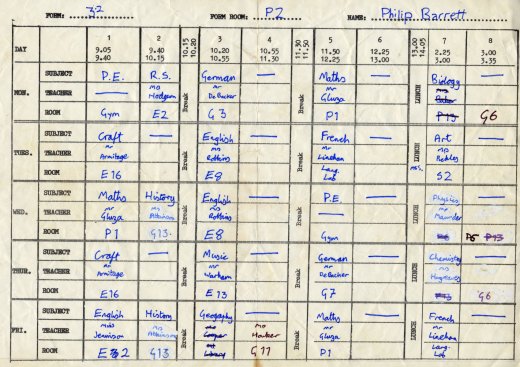 FORM: 3-2 FORM ROOM: P2 NAME: Philip Barrett
DAY 1 2 3 4 5 6 7 8
9.05 9.40 10.15 10.20 10.55 11.30 11.50 12.25 13.00 2.25 3.00
9.40 10.15 10.20 10.55 11.30 11.50 12.25 13.00 14.05 3.00 3.35
MON. SUBJECT P.E. R.S. German — Maths — Biology —
TEACHER — Hodgson Mr DeBucker Mr Gluza
ROOM Gym E2 Break G3 Break P1 LUNCH P13 G6
TUES. SUBJECT Craft — English — French — Art —
TEACHER Mr Armitage Mrs Robbins Mr Linehan
ROOM E16 Break E8 Break Lang. Lab LUNCH S2
WED. SUBJECT Maths History English — P.E. — Physics —
TEACHER Mr Gluza Mrs Robbins — Mr
ROOM P1 G13 Break E8 Break Gym LUNCH P6 P13
THUR. SUBJECT Craft — Music — German — Chemistry —
TEACHER Mr Armitage Mr Mr DeBucker
ROOM E16 Break E13 Break G7 LUNCH G6
FRI. SUBJECT English History Geography — Maths — French —
TEACHER Miss Jewison Mr Gluza Mr Linehan
ROOM E2 G13 Break Library G11 Break P1 LUNCH Lang. Lab